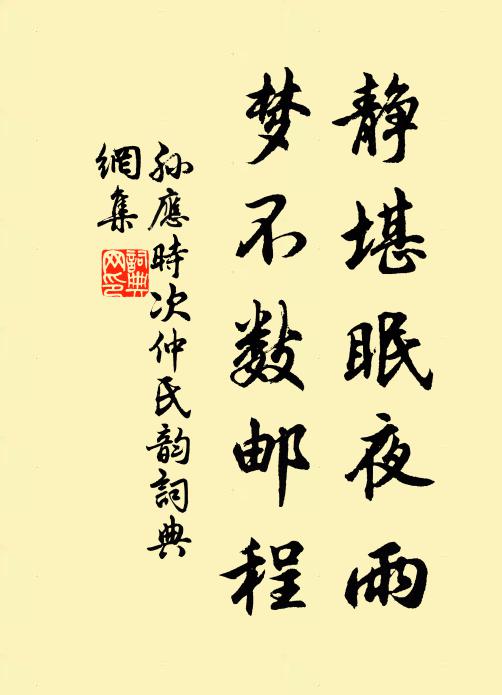 静堪眠夜雨
梦不数邮程
孙應時次仲氏韵詞典
網集
詞典
网印